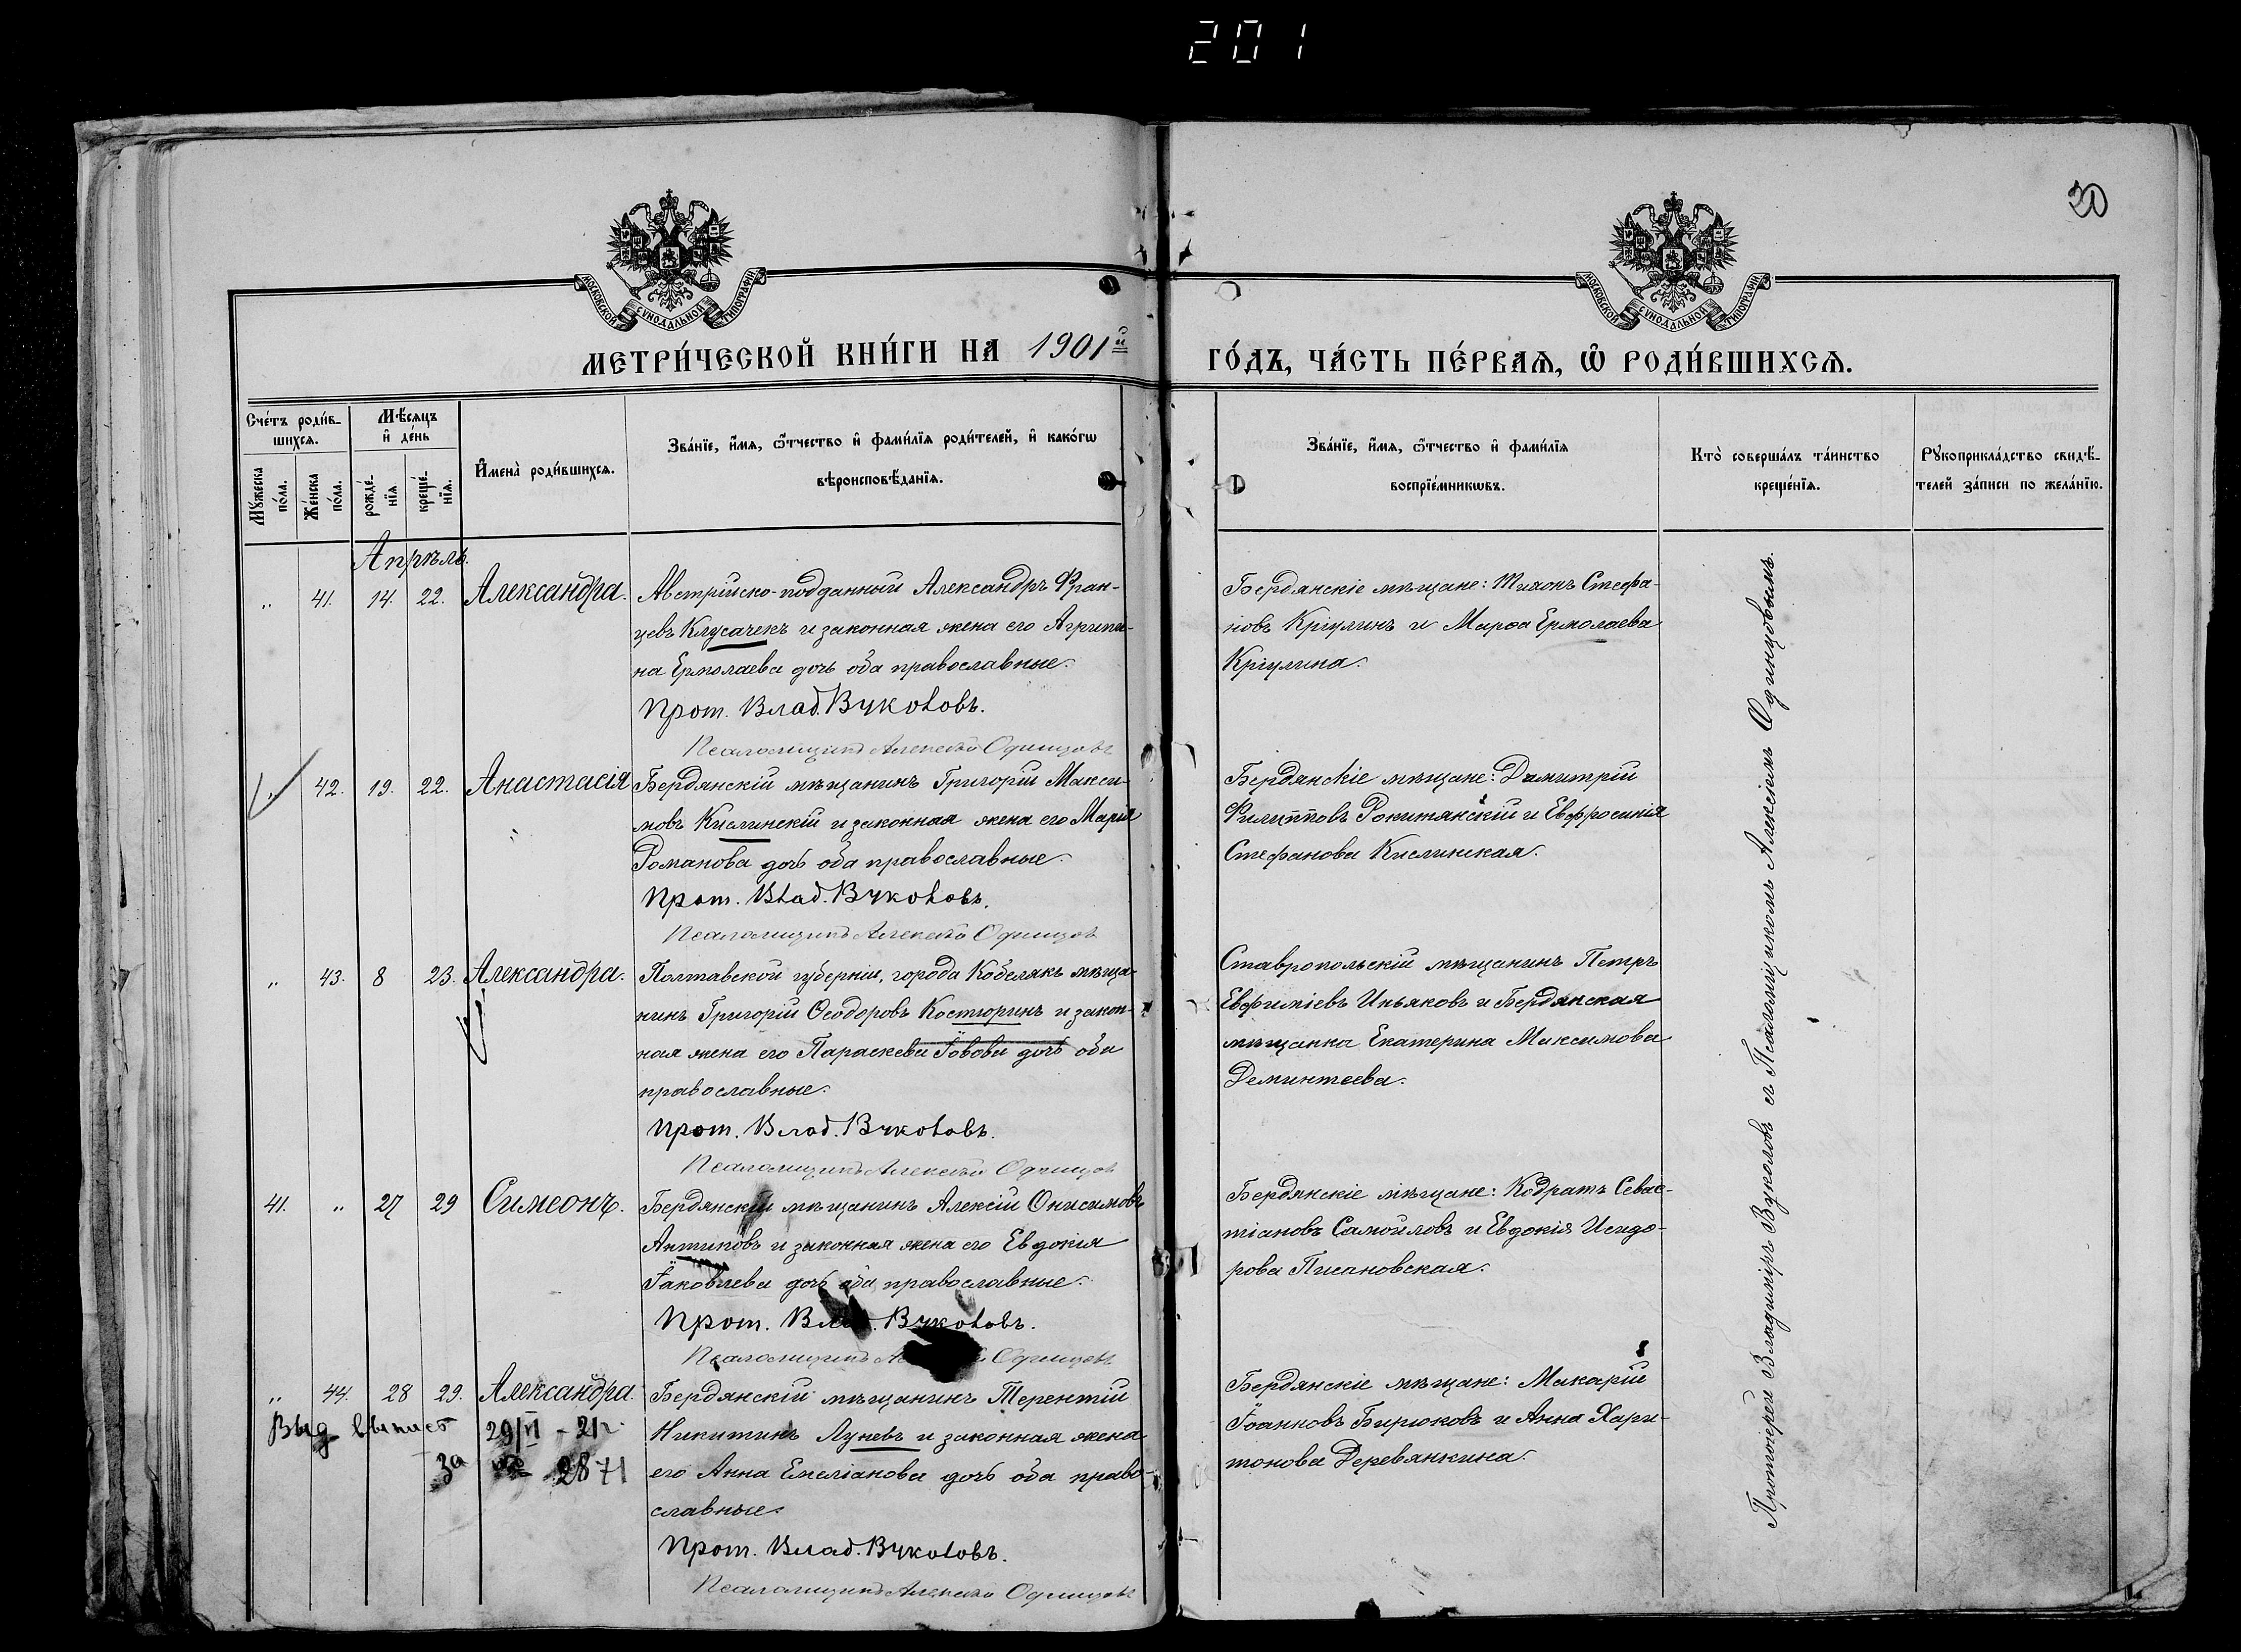 201
20
МОСКОВСКОЙ СѴНОДАЛЬНОЙ ТИПОГРАФІИ
МОСКОВСКОЙ СѴНОДАЛЬНОЙ ТИПОГРАФІИ
МЕТРИ́ЧЕСКОЙ КНИ́ГИ НА 1901й
ГО́ДЪ, ЧА́СТЬ ПЕ́РВАѦ, Ѽ РОДИ́ВШИХСѦ.
Сче́тъ роди́в-
шихсѧ.
Мꙋ́жеска
по́ла.
Же́нска
по́ла.
Мѣ́сѧцъ
и҆ де́нь
рожде́-
нїѧ
креще́-
нїѧ.
И҆мена̀ роди́вшихсѧ.
Зва́нїе, и҆́мѧ, ѻ҆́тчество и҆ фами́лїѧ роди́телей, и҆ како́гѡ
вѣроисповѣ́данїѧ.
Зва́нїе, и҆́мѧ, ѻ҆́тчество и҆ фами́лїѧ
воспрїе́мникѡвъ.
Кто̀ соверша́лъ та́инство
креще́нїѧ.
Рꙋкоприкла́дство свидѣ́-
телей за́писи по жела́нїю.
Апрѣль.
„ 41. 14. 22. Александра.
Австрійско-подданный Александръ Фран-
цевъ Клусачекъ и законная жена его Агрипи-
на Ермолаева дочь оба православные.
Прот. Влад. Вуколовъ.
Псаломщикъ Алексѣй Одинцовъ
Бердянскіе мѣщане: Тихонъ Стефа-
новъ Кріулинъ и Марѳа Ермолаева
Кріулина.
„ 42. 19. 22. Анастасія
Бердянскій мѣщанинъ Григорій Макси-
мовъ Кислинскій и законная жена его Марія
Романова дочь оба православные.
Прот. Влад. Вуколовъ.
Псаломщикъ Алексѣй Одинцовъ
Бердянскіе мѣщане: Димитрій
Филипповъ Рокитянскій и Евфросинія
Стефанова Кислинская.
„ 43. 8 23. Александра.
Полтавской губерніи, города Кобелякъ мѣща-
нинъ Григорій Ѳеодоровъ Костюринъ и закон-
ная жена его Параскева Іовова дочь оба
православные.
Прот. Влад. Вуколовъ.
Псаломщикъ Алексѣй Одинцовъ
Ставропольскій мѣщанинъ Петръ
Евфиміевъ Иньяковъ и Бердянская
мѣщанка Екатерина Максимова
Деминтеева.
41. „ 27 29 Симеонъ.
Бердянскій мѣщанинъ Алексій Онисимовъ
Антиповъ и законная жена его Евдокія
Іаковлева дочь оба православные.
Прот. Вуколовъ.
Псаломщикъ Одинцовъ
Бердянскіе мѣщане: Кодратъ Севас-
тіановъ Самойловъ и Евдокія Исидо-
рова Писановская.
„ 44. 28 29. Александра.
Выд выпись 29/VI - 21г.
За № 2871
Бердянскій мѣщанинъ Терентій
Никитинъ Луневъ и законная жена
его Анна Емеліанова дочь оба право-
славные.
Прот. Влад. Вуколовъ.
Псаломщикъ Алексѣй Одинцовъ
Бердянскіе мѣщане: Макарій
Іоанновъ Бирюковъ и Анна Хари-
тонова Деревянкина.
Протоіерей Владиміръ Вуколовъ съ Псаломщикомъ Алексѣемъ Одинцовымъ.